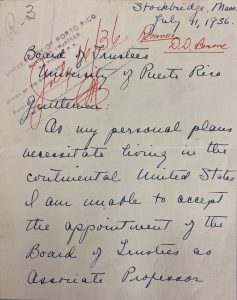 Stockbridge, Mass.
July 11, 1936.
UNIVERSITY OF PORTO RICO
TRUSTEES
D.D. Bourne
Board of Trustees
University of Puerto Rico
Gentlemen:
As my personal plans
necessitate living in the
continental United States
I am unable to accept
the appointment of the
Board of Trustees as
Associate Professor